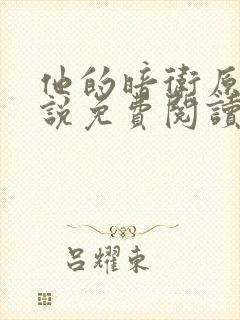 他的暗衛原
說免費閱讀
呂耀東